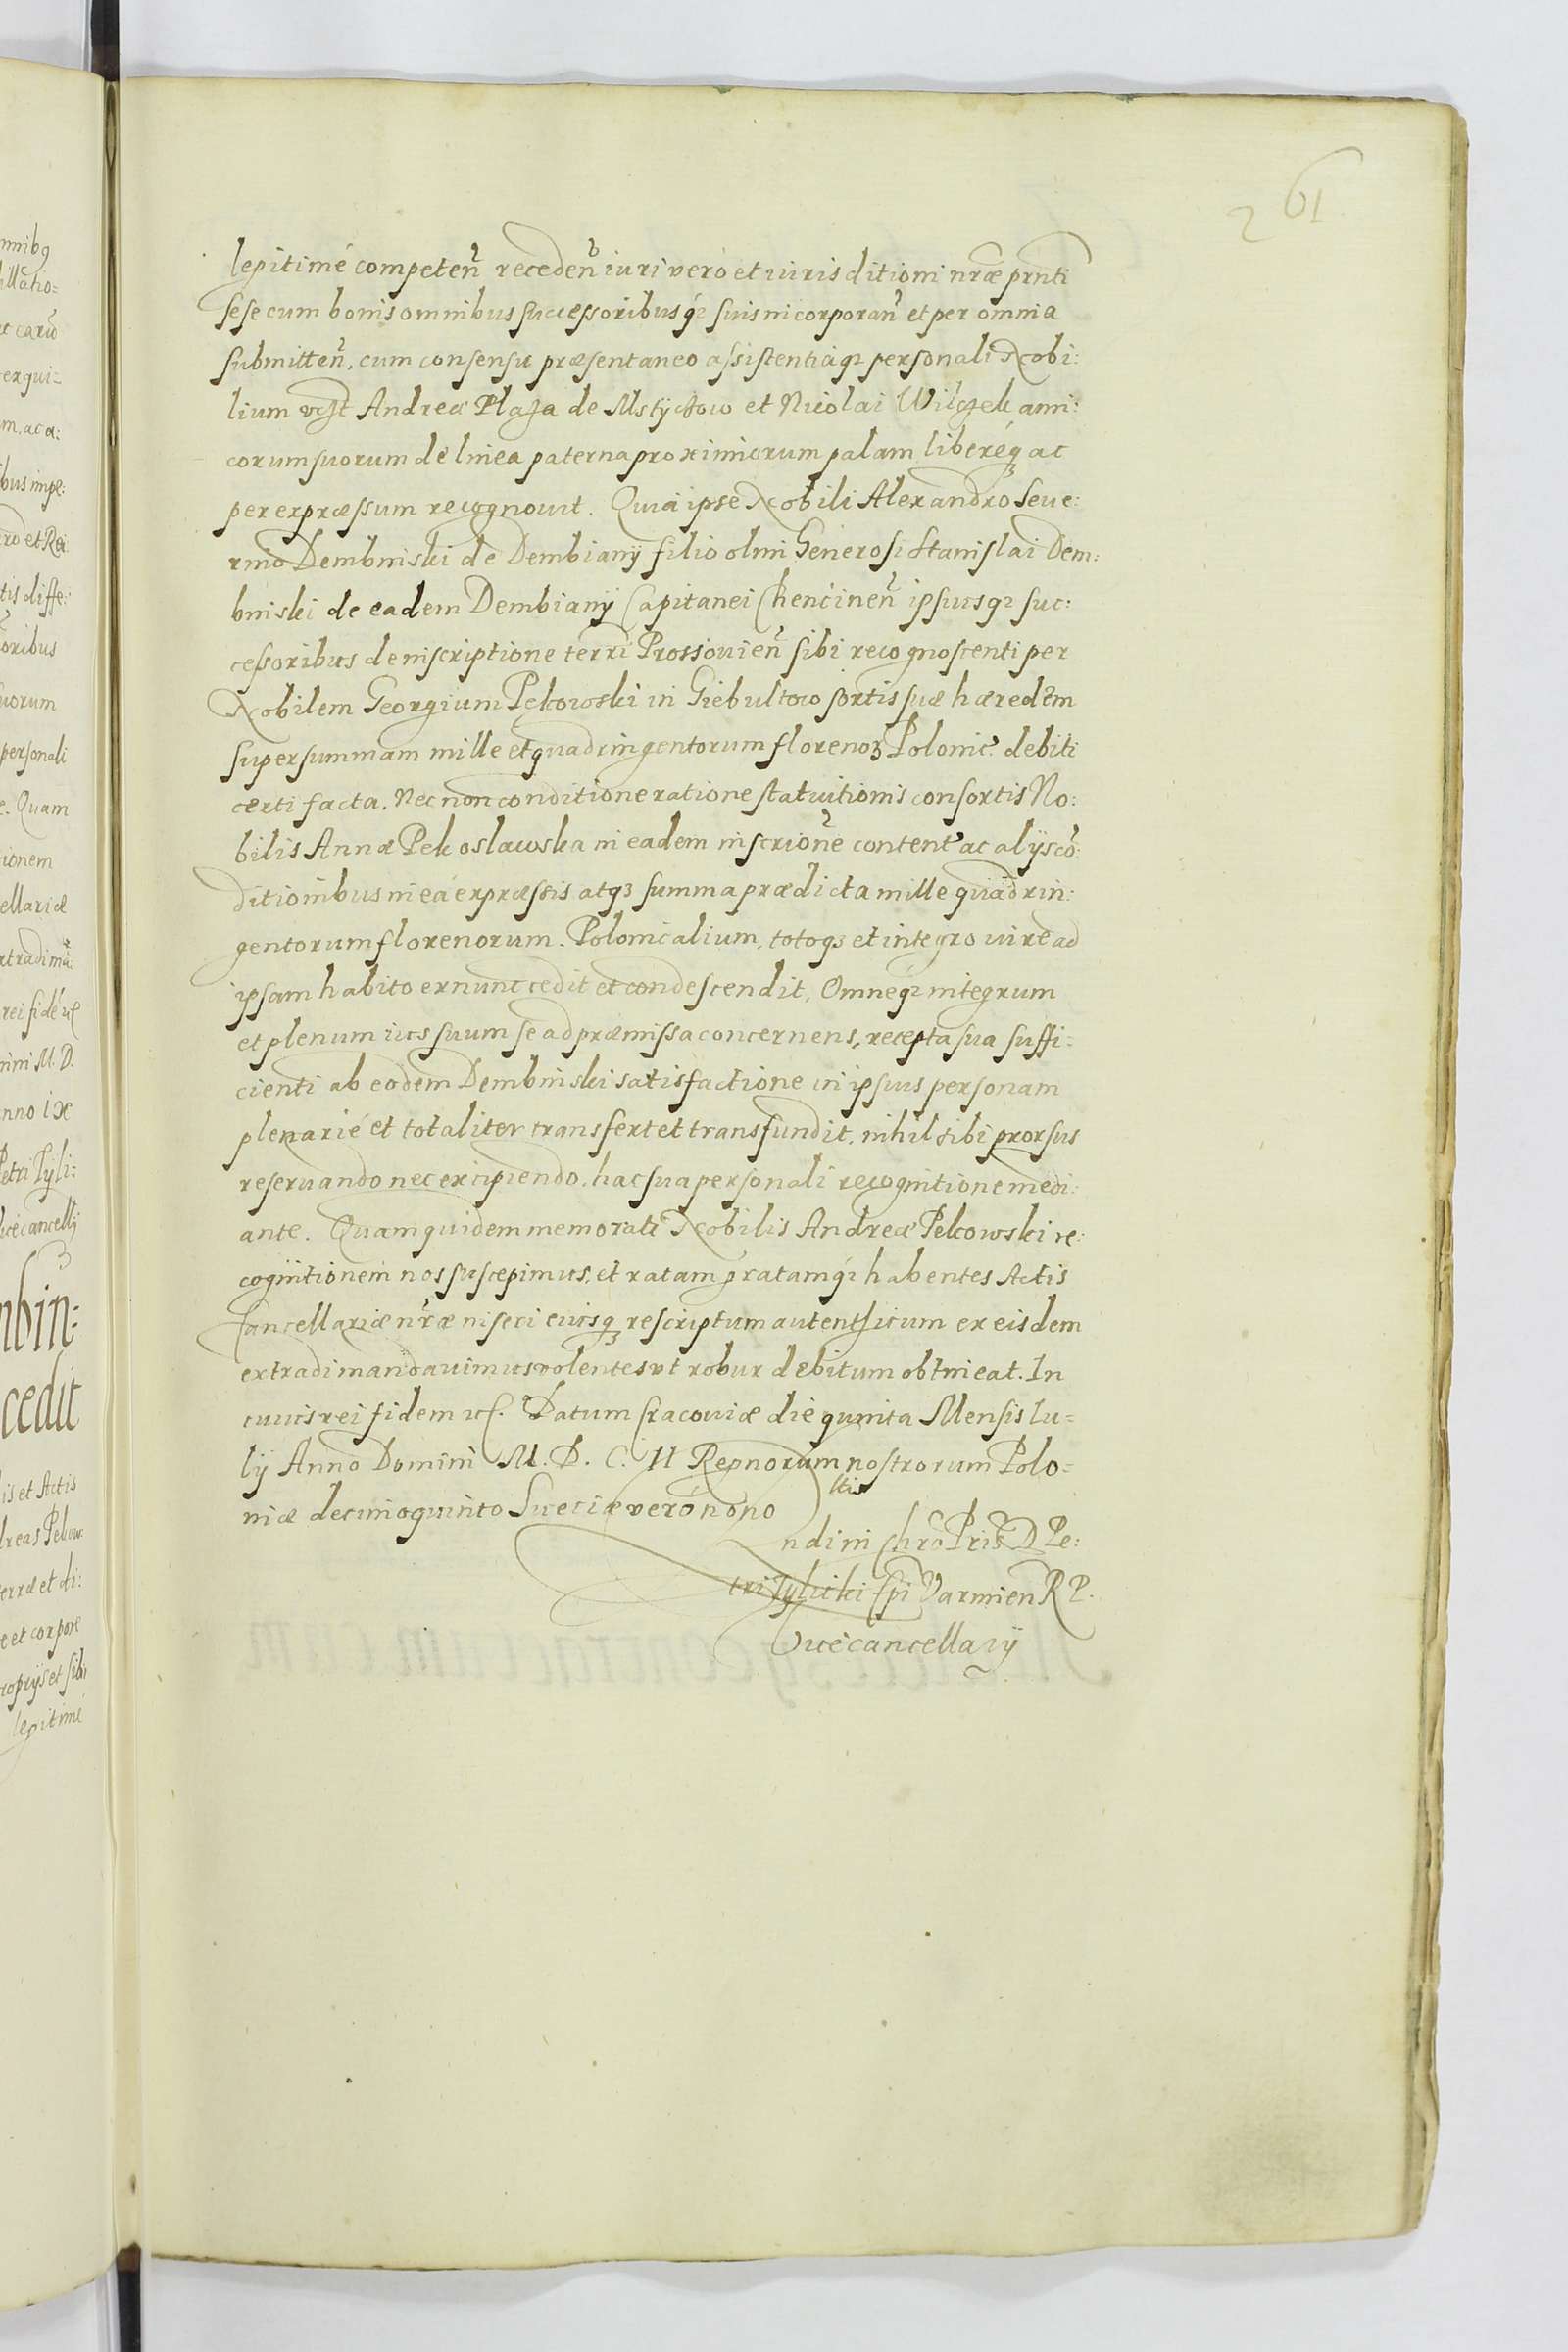 261
legitimé competeñ recedeñ iuri vero et iurisditioni nr̃æ pr̃nti
sese cum bonis omnibus successoribusq3 suis incorporañ et per omnia
submitteñ, cum consensu præsentaneo assistentiaq3 personali Nobi:
lium Andreæ Plaza de Mstyczow et Nicolai Wilczek ami:
corum suorum de linea paterna proximiorum palam libereq3 ac
per expræssum recognouit. Quia ipse Nobili Alexandro Seue:
rino Dembinski de Dembiany filio olim Generosi Stanislai Dem:
binski de eadem Dembiany Capitanei Chencineñ ipsiusq3 suc:
cessoribus de inscriptione terri Prossouieñ sibi recognoscenti per
Nobilem Georgium Pekowski in Giebultow sortis suæ hæredem
super summam mille et quadringentorum florenoꝝ Polonic debiti
certi facta. Nec non conditione ratione statuitionis consortis No:
bilis Annæ Pekoslawska in eadem inscrione content ac alijs cõ:
ditionibus in ea expræssis atq3 summa prædicta mille quadrin:
gentorum florenorum. Polonicalium, totoq3 et integro iure ad
ipsam habito ex nunc cedit et condescendit, Omneq3 integrum
et plenum ius suum se ad præmissa concernens, recepta sua suffi:
cienti ab eodem Dembinski satisfactione in ipsius personam
plenarié et totaliter transfert et transfundit, nihil sibi prorsus
reseruando nec excipiendo, hac sua personali recognitione medi:
ante. Quam quidem memorati Nobilis Andreæ Pekowski re:
cognitionem nos suscepimus, et ratam gratamq3 habentes Actis
Cancellariæ nr̃æ inseri eiusq3 rescriptum autenthicum ex eisdem
extradi mandauimus volentes vt robur debitum obtineat. In
cuius rei fidem etc. Datum Cracouiæ die quinta Mensis Iu=
lij Anno Domini M. D. C. II Regnorum nostrorum Polo=
niæ decimoquinto Sueciæ veró nono
ltis
ndi in Chr̃o Pris D Pe:
tri Tylicki Epi Varmien R P.
Vicecancellarij